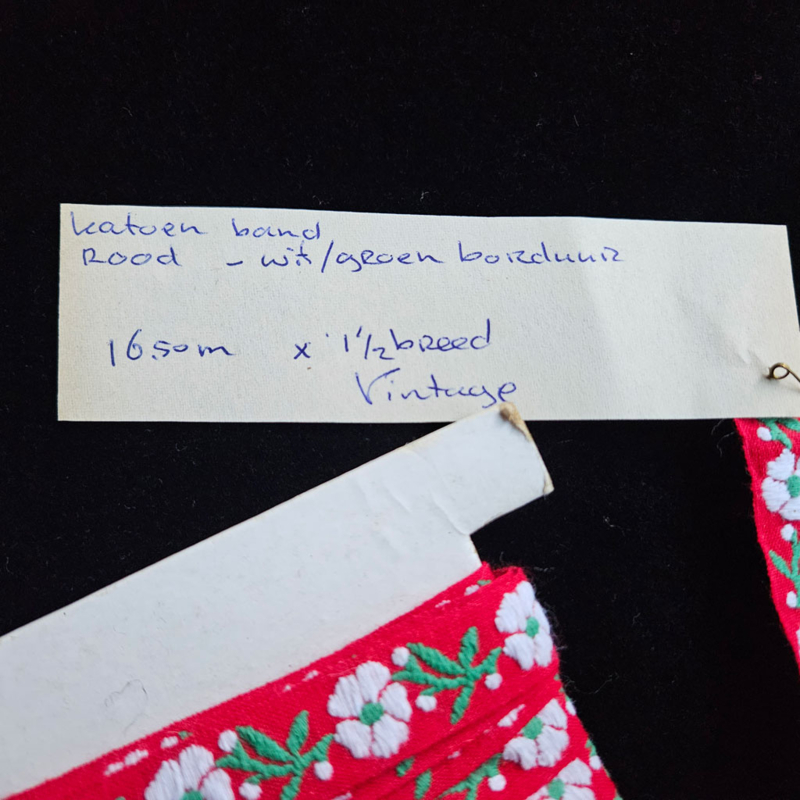 katoen band
Rood - wit/groen borduur
16.50m x 1 1/2 breed
Vintage